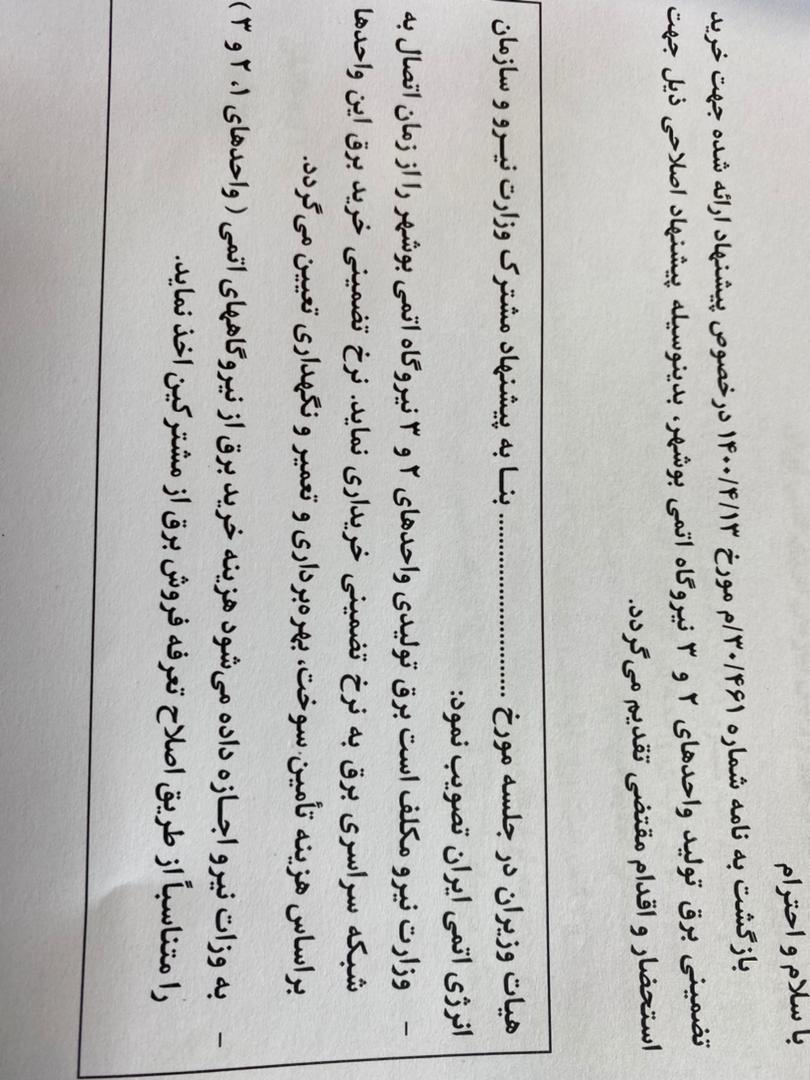 با سلام و احترام
بازگشت به نامه شماره ۳۰/۴۶۱/م مورخ ۱۴۰۰/۴/۱۳ درخصوص پیشنهاد ارائه شده جهت خرید
تضمینی برق تولید واحدهای ۲ و ۳ نیروگاه اتمی بوشهر، بدینوسیله پیشنهاد اصلاحی ذیل جهت
استحضار و اقدام مقتضی تقدیم می‌گردد.
هیات وزیران در جلسه مورخ .............................. بنا به پیشنهاد مشترک وزارت نیرو و سازمان
انرژی اتمی ایران تصویب نمود:
– وزارت نیرو مکلف است برق تولیدی واحدهای ۲ و ۳ نیروگاه اتمی بوشهر را از زمان اتصال به
شبکه سراسری برق به نرخ تضمینی خریداری نماید. نرخ تضمینی خرید برق این واحدها
براساس هزینه تأمین سوخت، بهره‌برداری و تعمیر و نگهداری تعیین می‌گردد.
– به وزات نیرو اجازه داده می‌شود هزینه خرید برق از نیروگاههای اتمی ( واحدهای ۱، ۲ و ۳ )
را متناسباً از طریق اصلاح تعرفه فروش برق از مشترکین اخذ نماید.